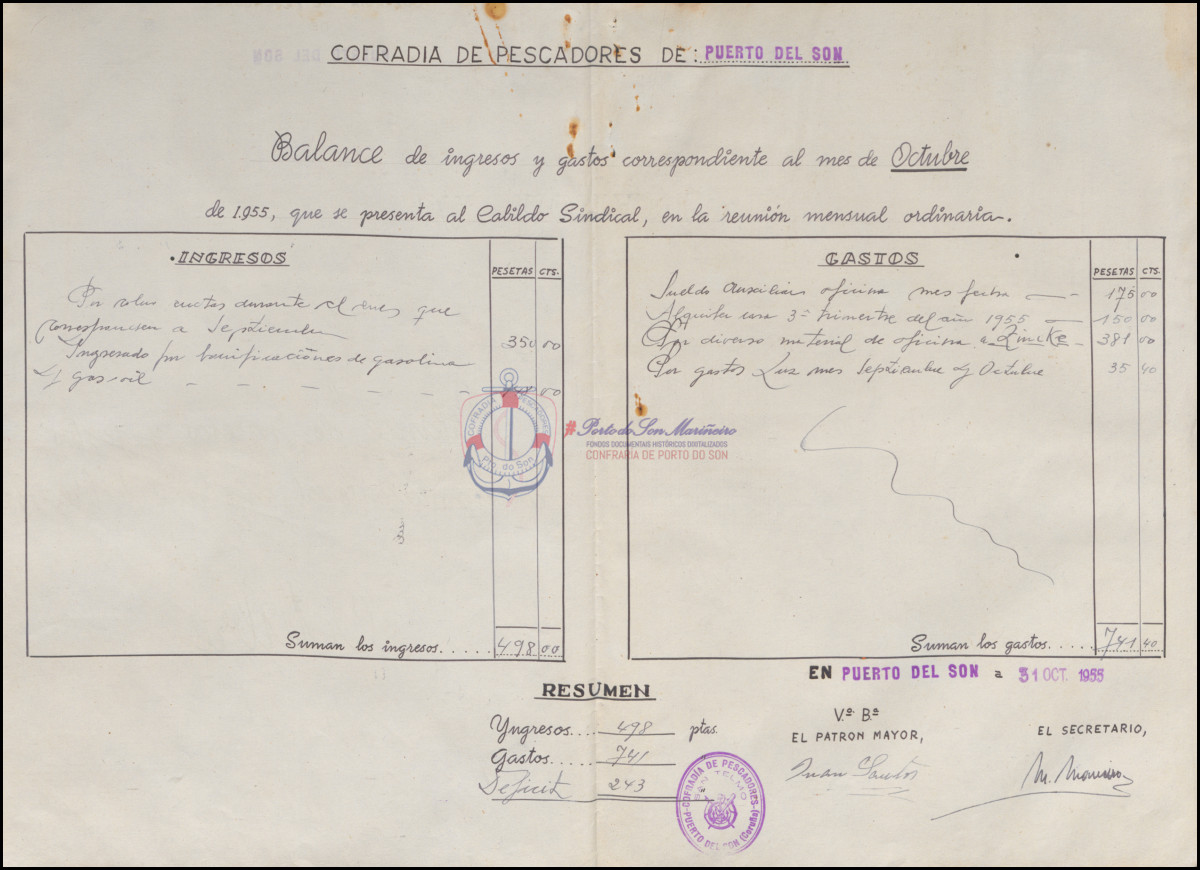 COFRADIA DE PESCADORES DE: PUERTO DEL SON
Balance de ingresos y gastos correspondiente al mes de Octubre
de 1.955, que se presenta al Cabildo Sindical, en la reunión mensual ordinaria.
INGRESOS
PESETAS CTS.
Por cuotas durante el mes que
corresponden a Septiembre 350 00
Ingresado por bonificaciones de gasolina
y gas-oil - - - - - 00
Suman los ingresos..... 498 00
GASTOS
PESETAS CTS.
Sueldo Auxiliar oficina mes fecha — - 175 00
Alquiler casa 3º trimestre del año 1955 — - 150 00
Por diverso material de oficina a Zincke - 381 00
Por gastos Luz mes Septiembre y Octubre 35 40
Suman los gastos..... 741 40
COFRADIA PESCADORES
Pto. do Son
#Porto do Son Mariñeiro
FONDOS DOCUMENTAIS HISTÓRICOS DIXITALIZADOS
CONFRARÍA DE PORTO DO SON
EN PUERTO DEL SON a 31 OCT. 1955
RESUMEN
Yngresos.... 498 ptas.
Gastos..... 741
Deficit 243
Vº Bº
EL PATRON MAYOR,
Juan Santos
EL SECRETARIO,
COFRADÍA DE PESCADORES
SAN TELMO
PUERTO DEL SON (Coruña)